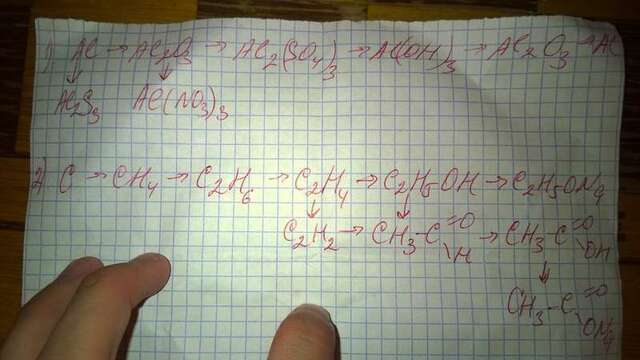 1) Al → Al2O3 → Al2(SO4)3 → Al(OH)3 → Al2O3 → Al
↓ ↓
Al2S3 Al(NO3)3
2) C → CH4 → C2H6 → C2H4 → C2H5OH → C2H5ONa
↓ ↓
C2H2 → CH3-C=O\H → CH3-C=O\OH
↓
CH3-C=O\ONa